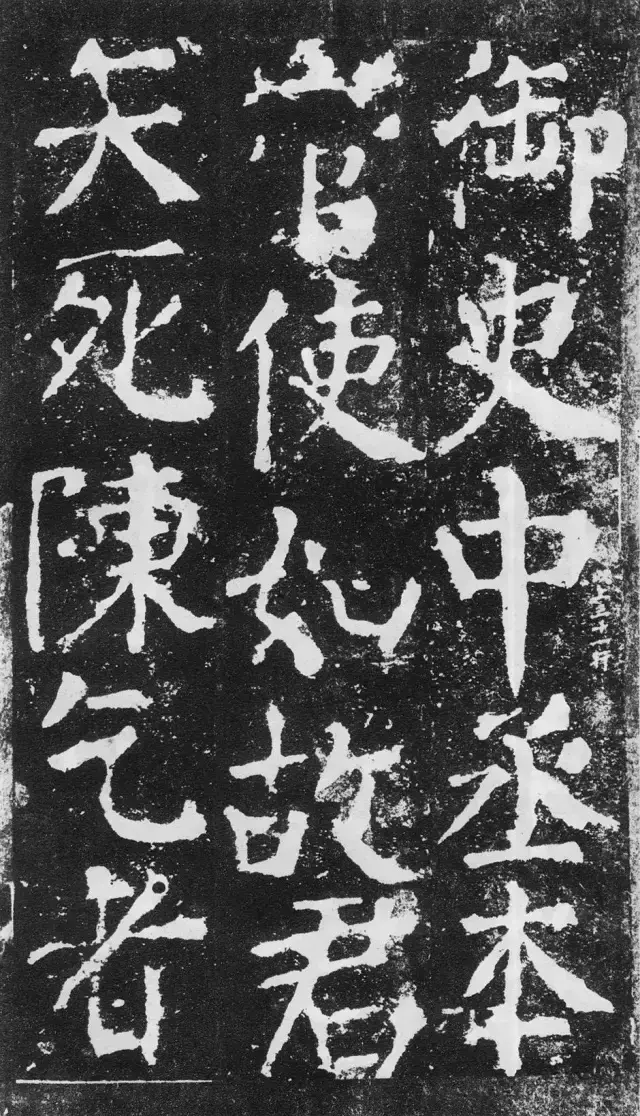 御史中丞本
官使如故君
矢死陳乞者